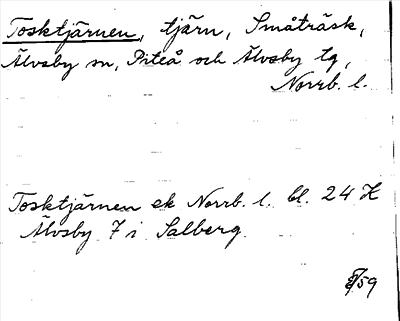 Tosktjärnen, tjärn, Småträsk,
Älvsby sn, Piteå och Älvsby tg,
Norrb. l.
Tosktjärnen ek Norrb. l. bl. 24 H
Älvsby 7 i Salberg.
/59